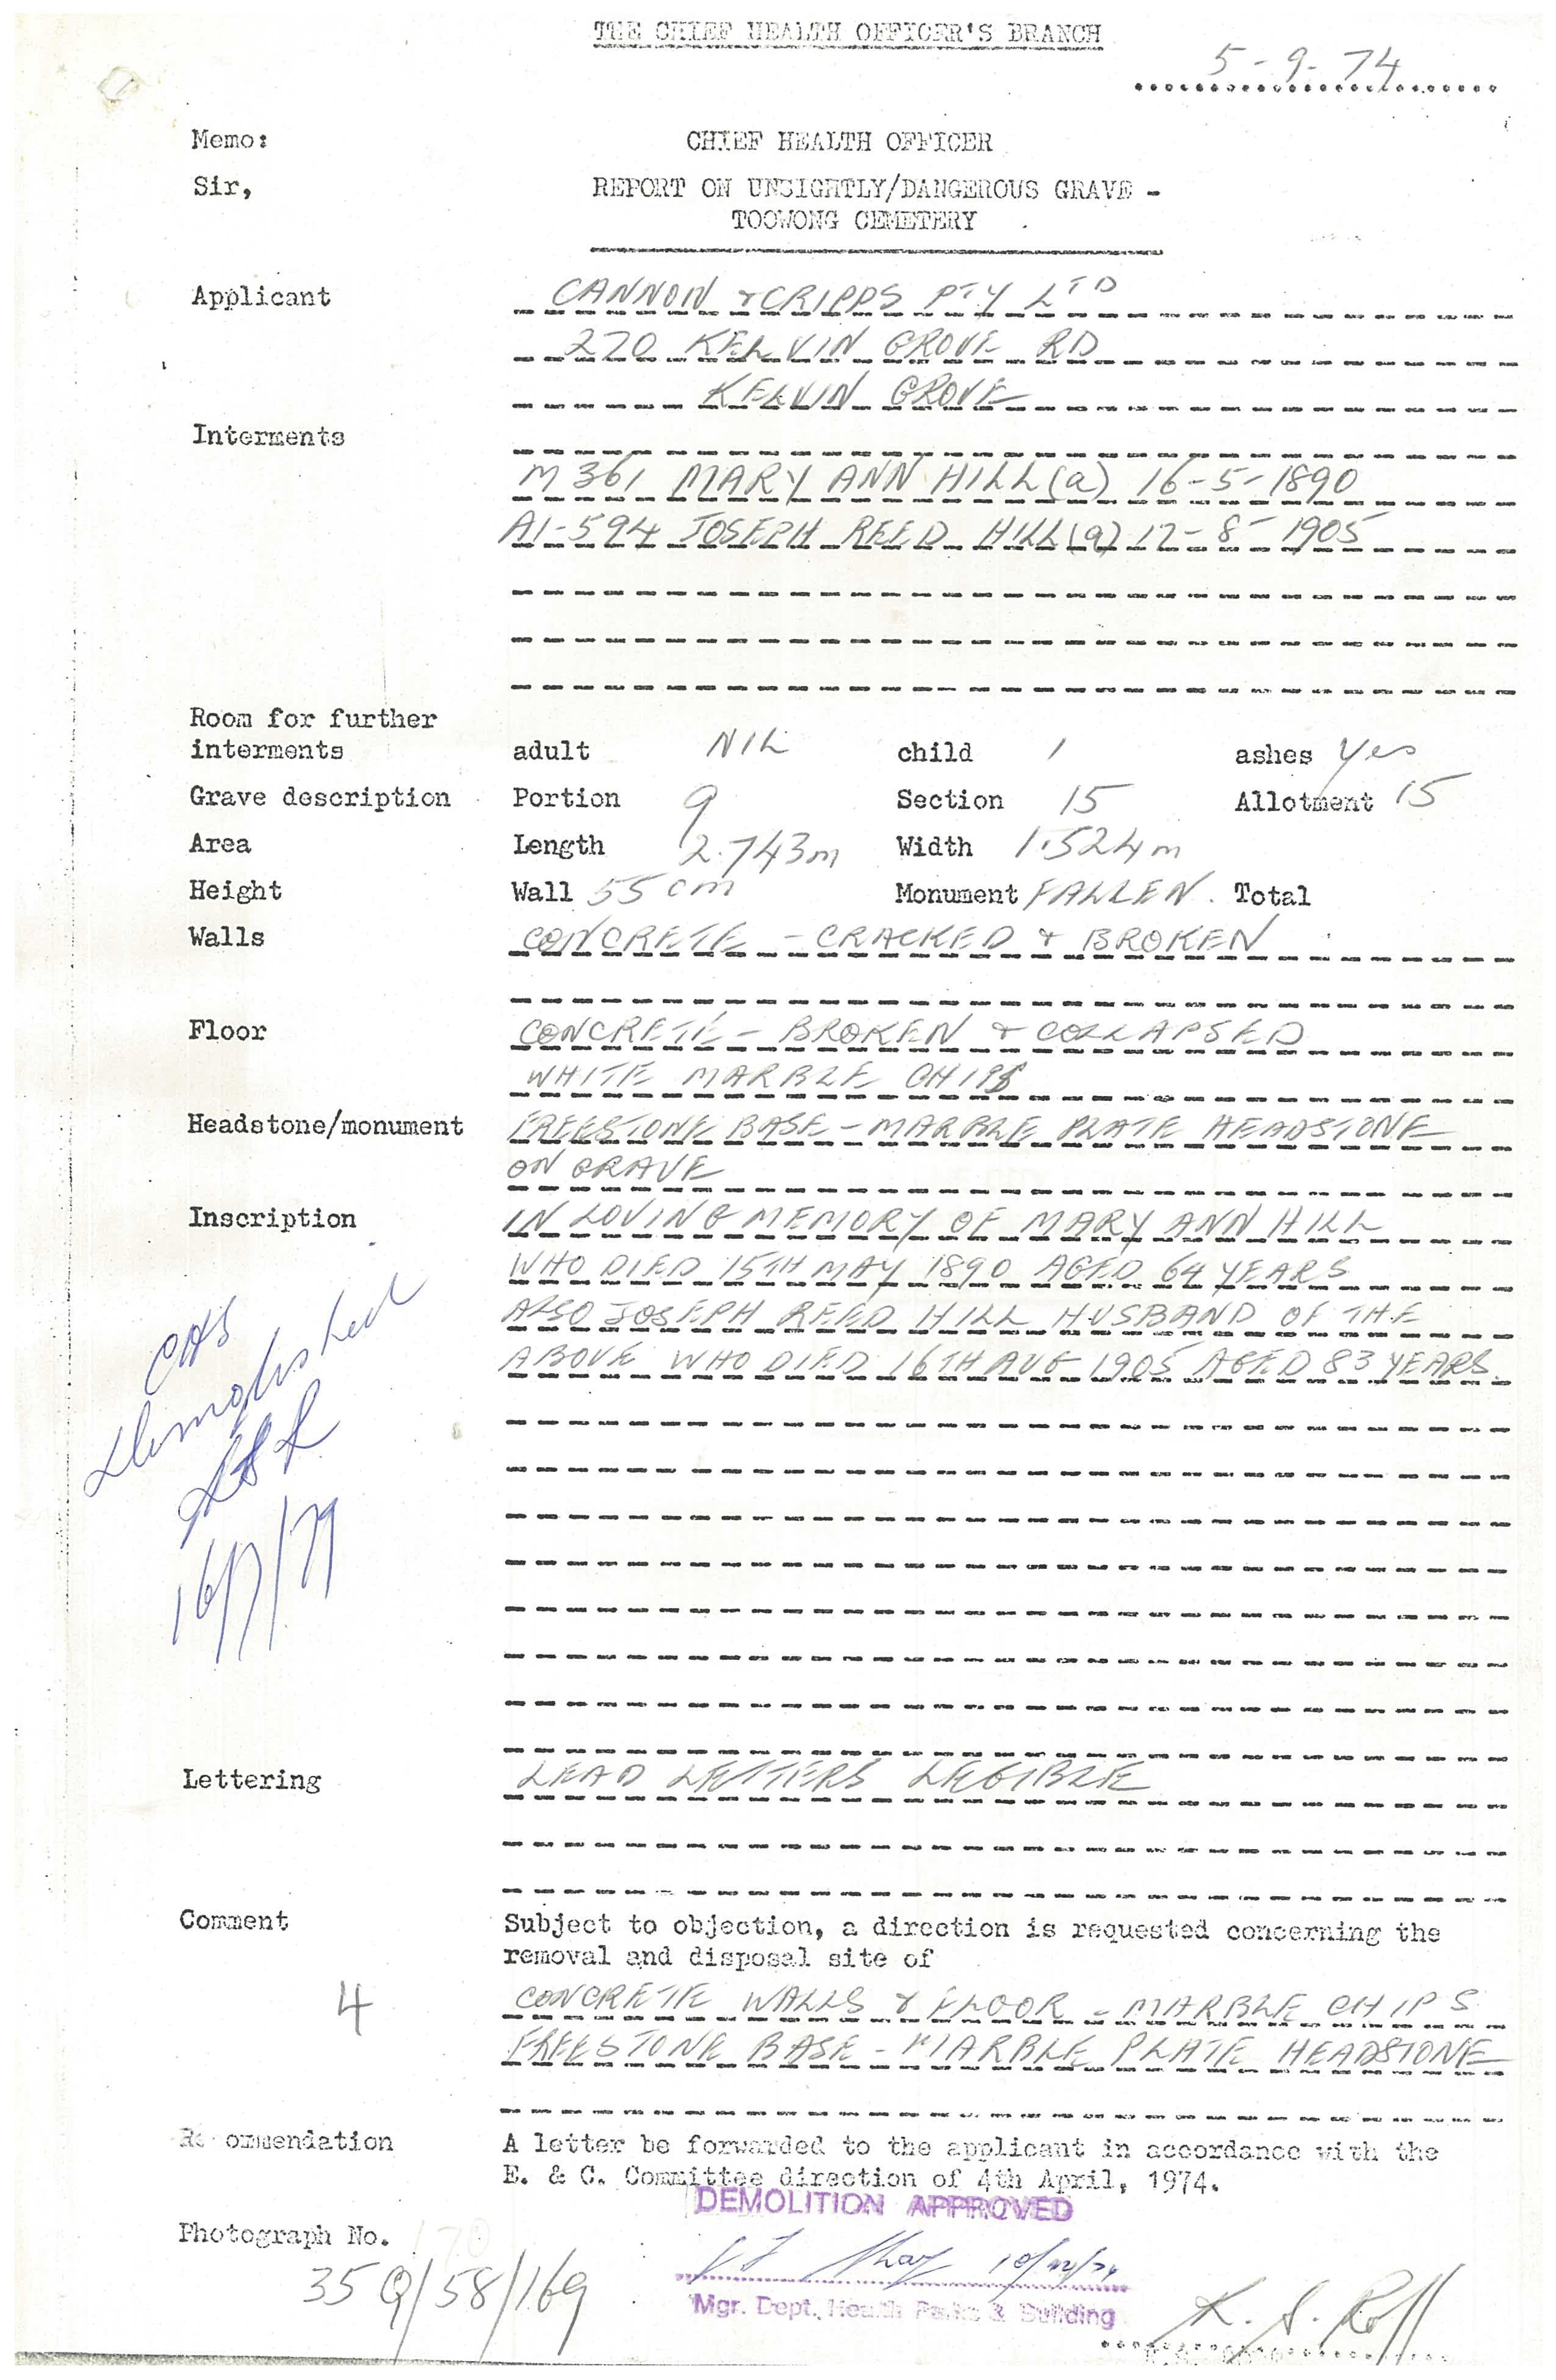 THE CHIEF HEALTH OFFICER'S BRANCH
5-9-74
Memo: CHIEF HEALTH OFFICER
Sir, REPORT ON UNSIGHTLY/DANGEROUS GRAVE -
TOOWONG CEMETERY
Applicant CANNON & CRIPPS PTY LTD
270 KELVIN GROVE RD
KELVIN GROVE
Interments
M361 MARY ANN HILL (a) 16-5-1890
A1-594 JOSEPH REED HILL (a) 17-8-1905
Room for further
interments adult NIL child 1 ashes yes
Grave description Portion 9 Section 15 Allotment 15
Area Length 2.743m Width 1.524m
Height Wall 55cm Monument FALLEN. Total
Walls CONCRETE - CRACKED & BROKEN
Floor CONCRETE - BROKEN & COLLAPSED
WHITE MARBLE CHIPS
Headstone/monument FREESTONE BASE - MARBLE PLATE HEADSTONE
ON GRAVE
Inscription IN LOVING MEMORY OF MARY ANN HILL
WHO DIED 15TH MAY 1890 AGED 64 YEARS
ALSO JOSEPH REED HILL HUSBAND OF THE
ABOVE WHO DIED 16TH AUG 1905 AGED 83 YEARS.
Demolished
16/7/79
Lettering LEAD LETTERS LEGIBLE
Comment Subject to objection, a direction is requested concerning the
removal and disposal site of
4 CONCRETE WALLS & FLOOR - MARBLE CHIPS
FREESTONE BASE - MARBLE PLATE HEADSTONE
Recommendation A letter be forwarded to the applicant in accordance with the
E. & C. Committee direction of 4th April, 1974.
DEMOLITION APPROVED
Photograph No. 170
35Q/58/169
Mgr. Dept. Health Parks & Building